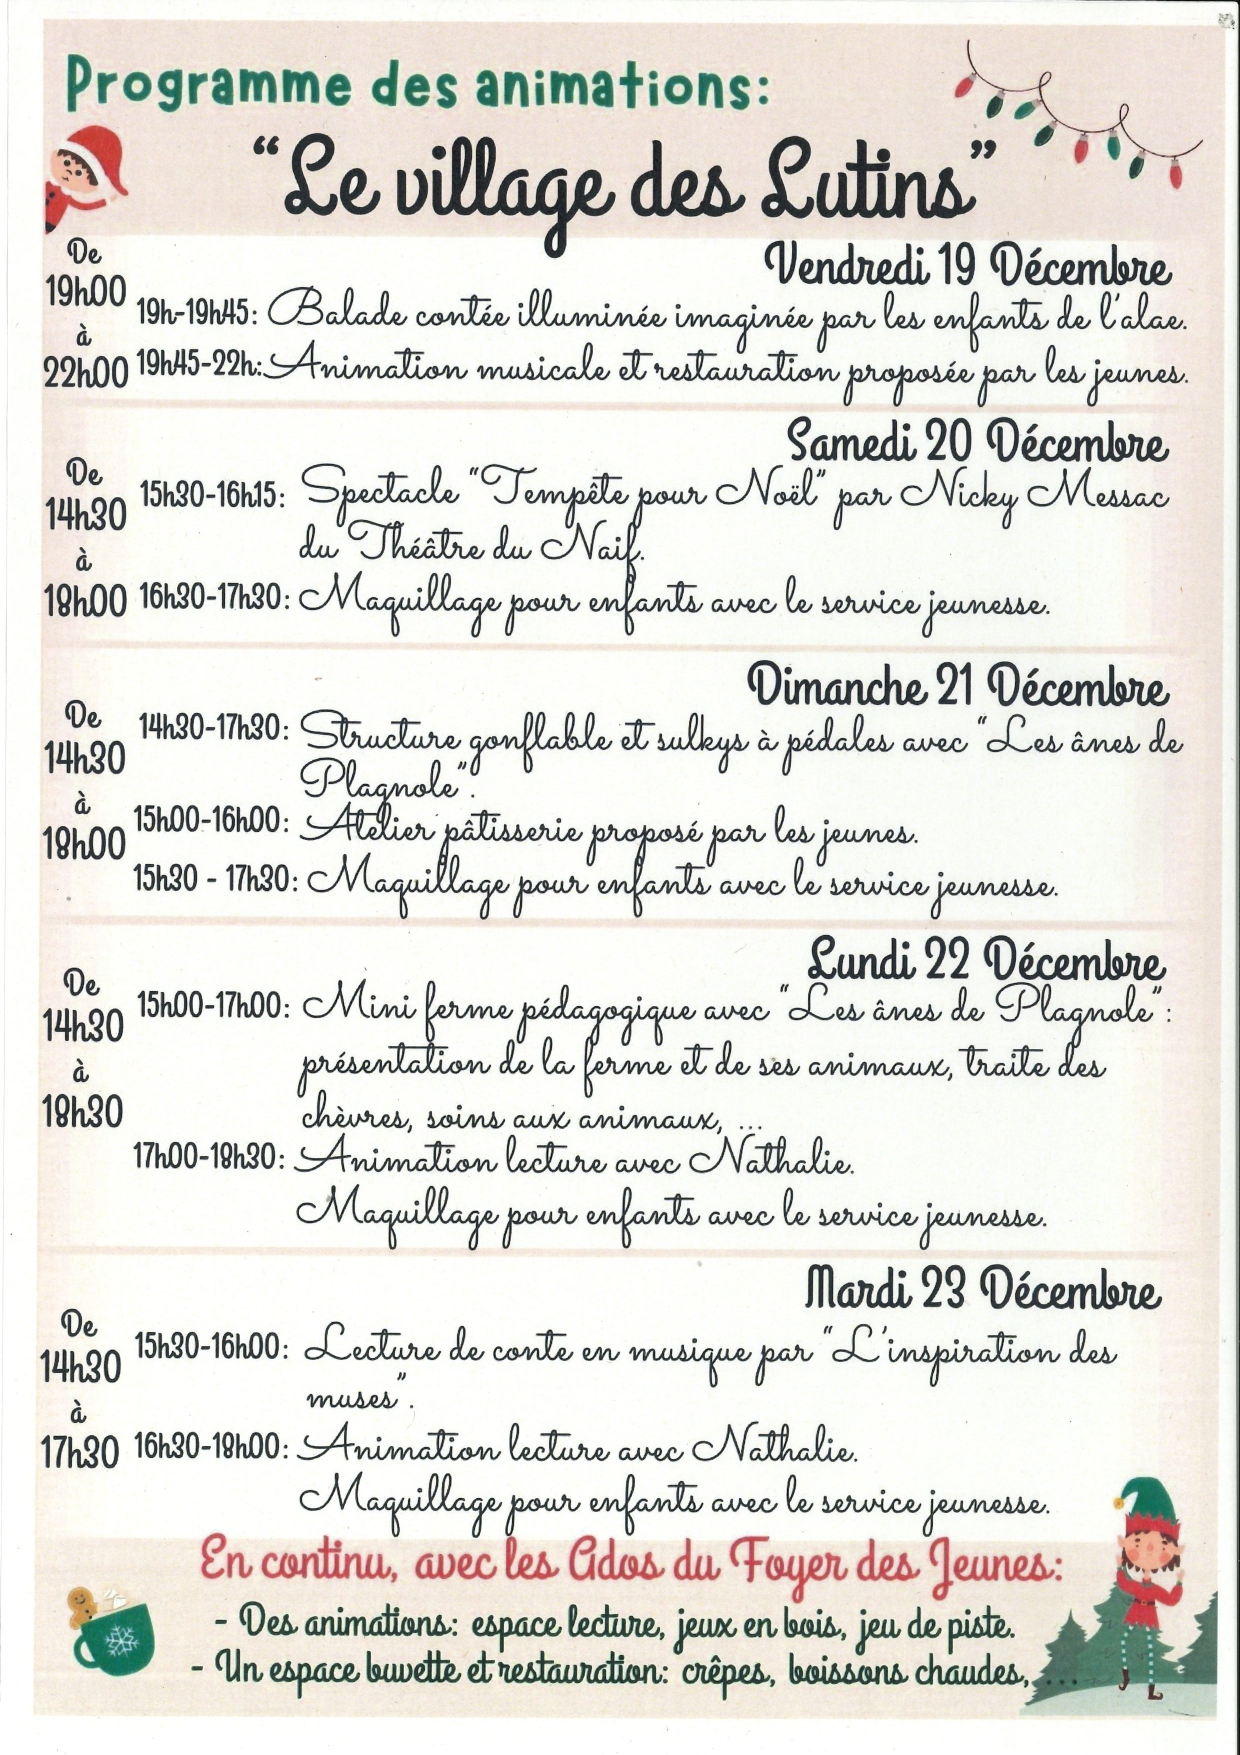 Programme des animations:
“Le village des Lutins”
De
19h00
à
22h00
Vendredi 19 Décembre
19h-19h45: Balade contée illuminée imaginée par les enfants de l'alae.
19h45-22h: Animation musicale et restauration proposée par les jeunes.
De
14h30
à
18h00
Samedi 20 Décembre
15h30-16h15: Spectacle "Tempête pour Noël" par Nicky Messac
du Théâtre du Naif.
16h30-17h30: Maquillage pour enfants avec le service jeunesse.
De
14h30
à
18h00
Dimanche 21 Décembre
14h30-17h30: Structure gonflable et sulkys à pédales avec "Les ânes de
Plagnole".
15h00-16h00: Atelier pâtisserie proposé par les jeunes.
15h30 - 17h30: Maquillage pour enfants avec le service jeunesse.
De
14h30
à
18h30
Lundi 22 Décembre
15h00-17h00: Mini ferme pédagogique avec "Les ânes de Plagnole":
présentation de la ferme et de ses animaux, traite des
chèvres, soins aux animaux, ...
17h00-18h30: Animation lecture avec Nathalie.
Maquillage pour enfants avec le service jeunesse.
De
14h30
à
17h30
Mardi 23 Décembre
15h30-16h00: Lecture de conte en musique par "L'inspiration des
muses".
16h30-18h00: Animation lecture avec Nathalie.
Maquillage pour enfants avec le service jeunesse.
En continu, avec les Ados du Foyer des Jeunes:
- Des animations: espace lecture, jeux en bois, jeu de piste.
- Un espace buvette et restauration: crêpes, boissons chaudes, ...